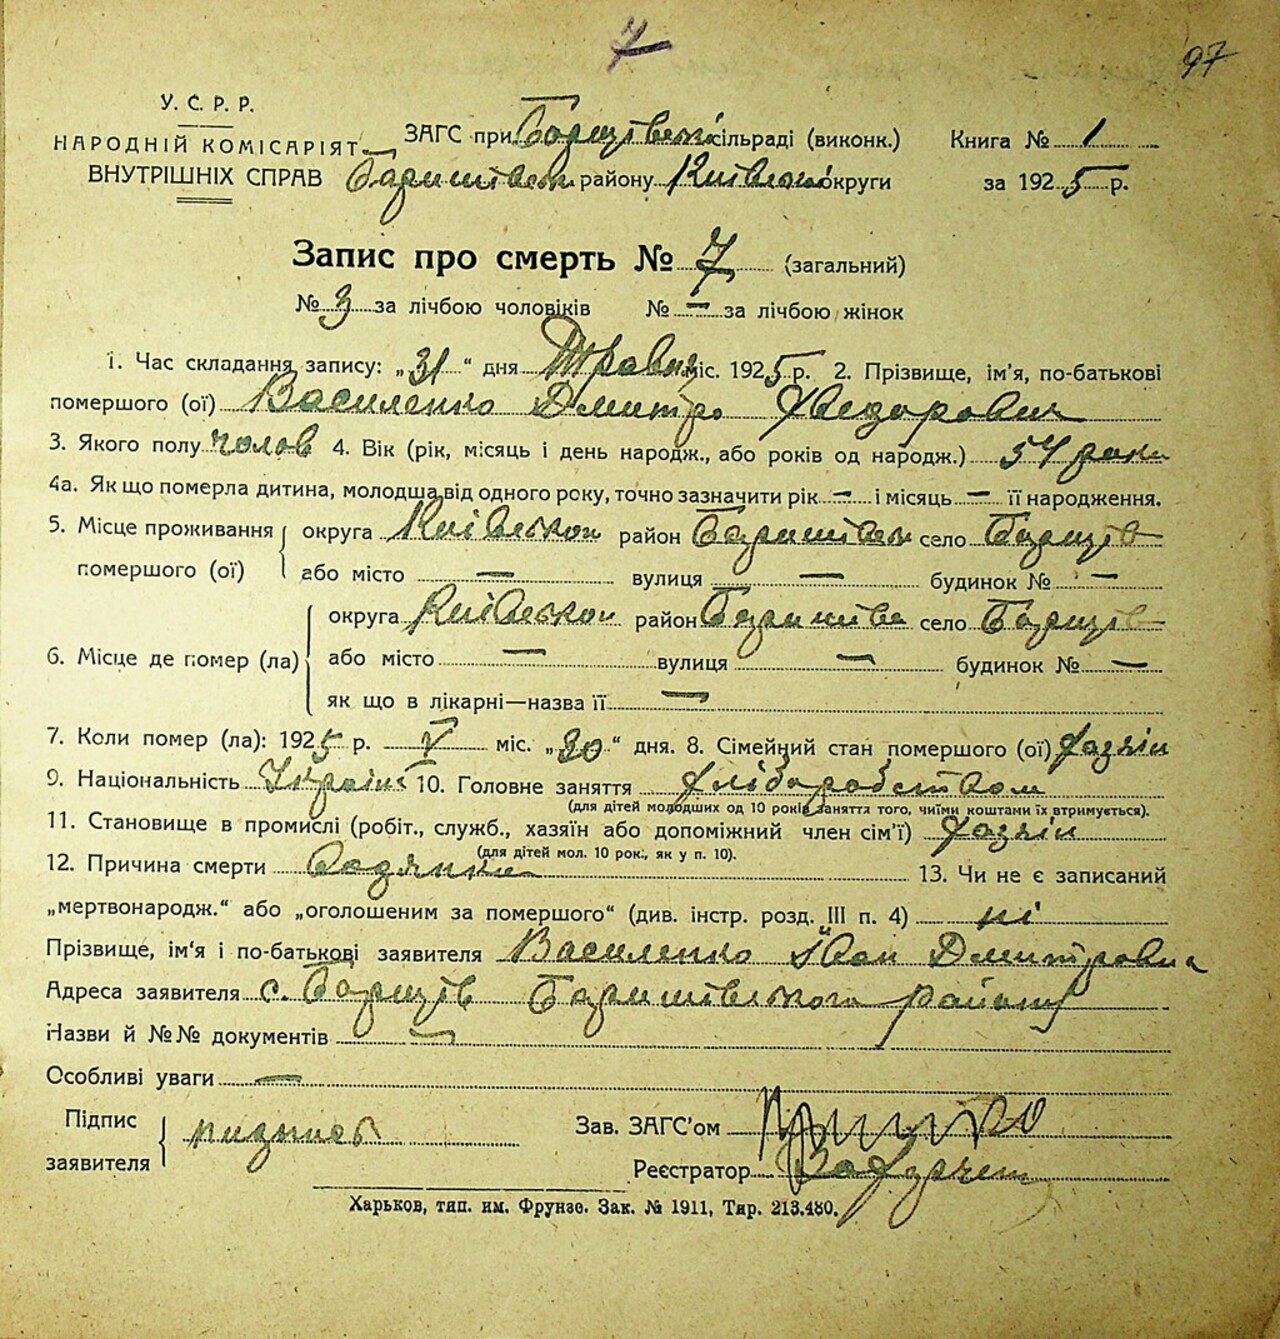 7
97
У. С. Р. Р.
НАРОДНІЙ КОМІСАРІЯТ
ВНУТРІШНІХ СПРАВ
ЗАГС при Борщівськ. сільраді (виконк.) Книга № 1
Баришівськ району Київської округи за 1925 р.
Запис про смерть № 7 (загальний)
№ 3 за лічбою чоловіків № — за лічбою жінок
1. Час складання запису: „31“ дня Травня міс. 1925 р. 2. Прізвище, ім'я, по-батькові
помершого (ої) Василенко Дмитро Хведорович
3. Якого полу чолов 4. Вік (рік, місяць і день народж., або років од народж.) 54 роки
4а. Як що померла дитина, молодша від одного року, точно зазначити рік — і місяць — її народження.
5. Місце проживання помершого (ої) округа Київської район Баришівськ село Борщів
або місто — вулиця — будинок № —
6. Місце де помер (ла) округа Київської район Баришівс село Борщів
або місто — вулиця — будинок № —
як що в лікарні—назва її —
7. Коли помер (ла): 1925 р. V міс. „30“ дня. 8. Сімейний стан помершого (ої) хазяін
9. Національність Україн 10. Головне заняття хліборобством
(для дітей молодших од 10 років заняття того, чиїми коштами їх втримується).
11. Становище в промислі (робіт., служб., хазяїн або допоміжний член сім'ї) хазяін
(для дітей мол. 10 рок., як у п. 10).
12. Причина смерти Водянка 13. Чи не є записаний
„мертвонародж.“ або „оголошеним за помершого“ (див. інстр. розд. III п. 4) ні
Прізвище, ім'я і по-батькові заявителя Василенко Іван Дмитрович
Адреса заявителя с. Борщів Баришівського району
Назви й №№ документів —
Особливі уваги —
Підпис заявителя
Зав. ЗАГС'ом
Реєстратор
Харьков, тип. им. Фрунзе. Зак. № 1911, Тир. 213.480.